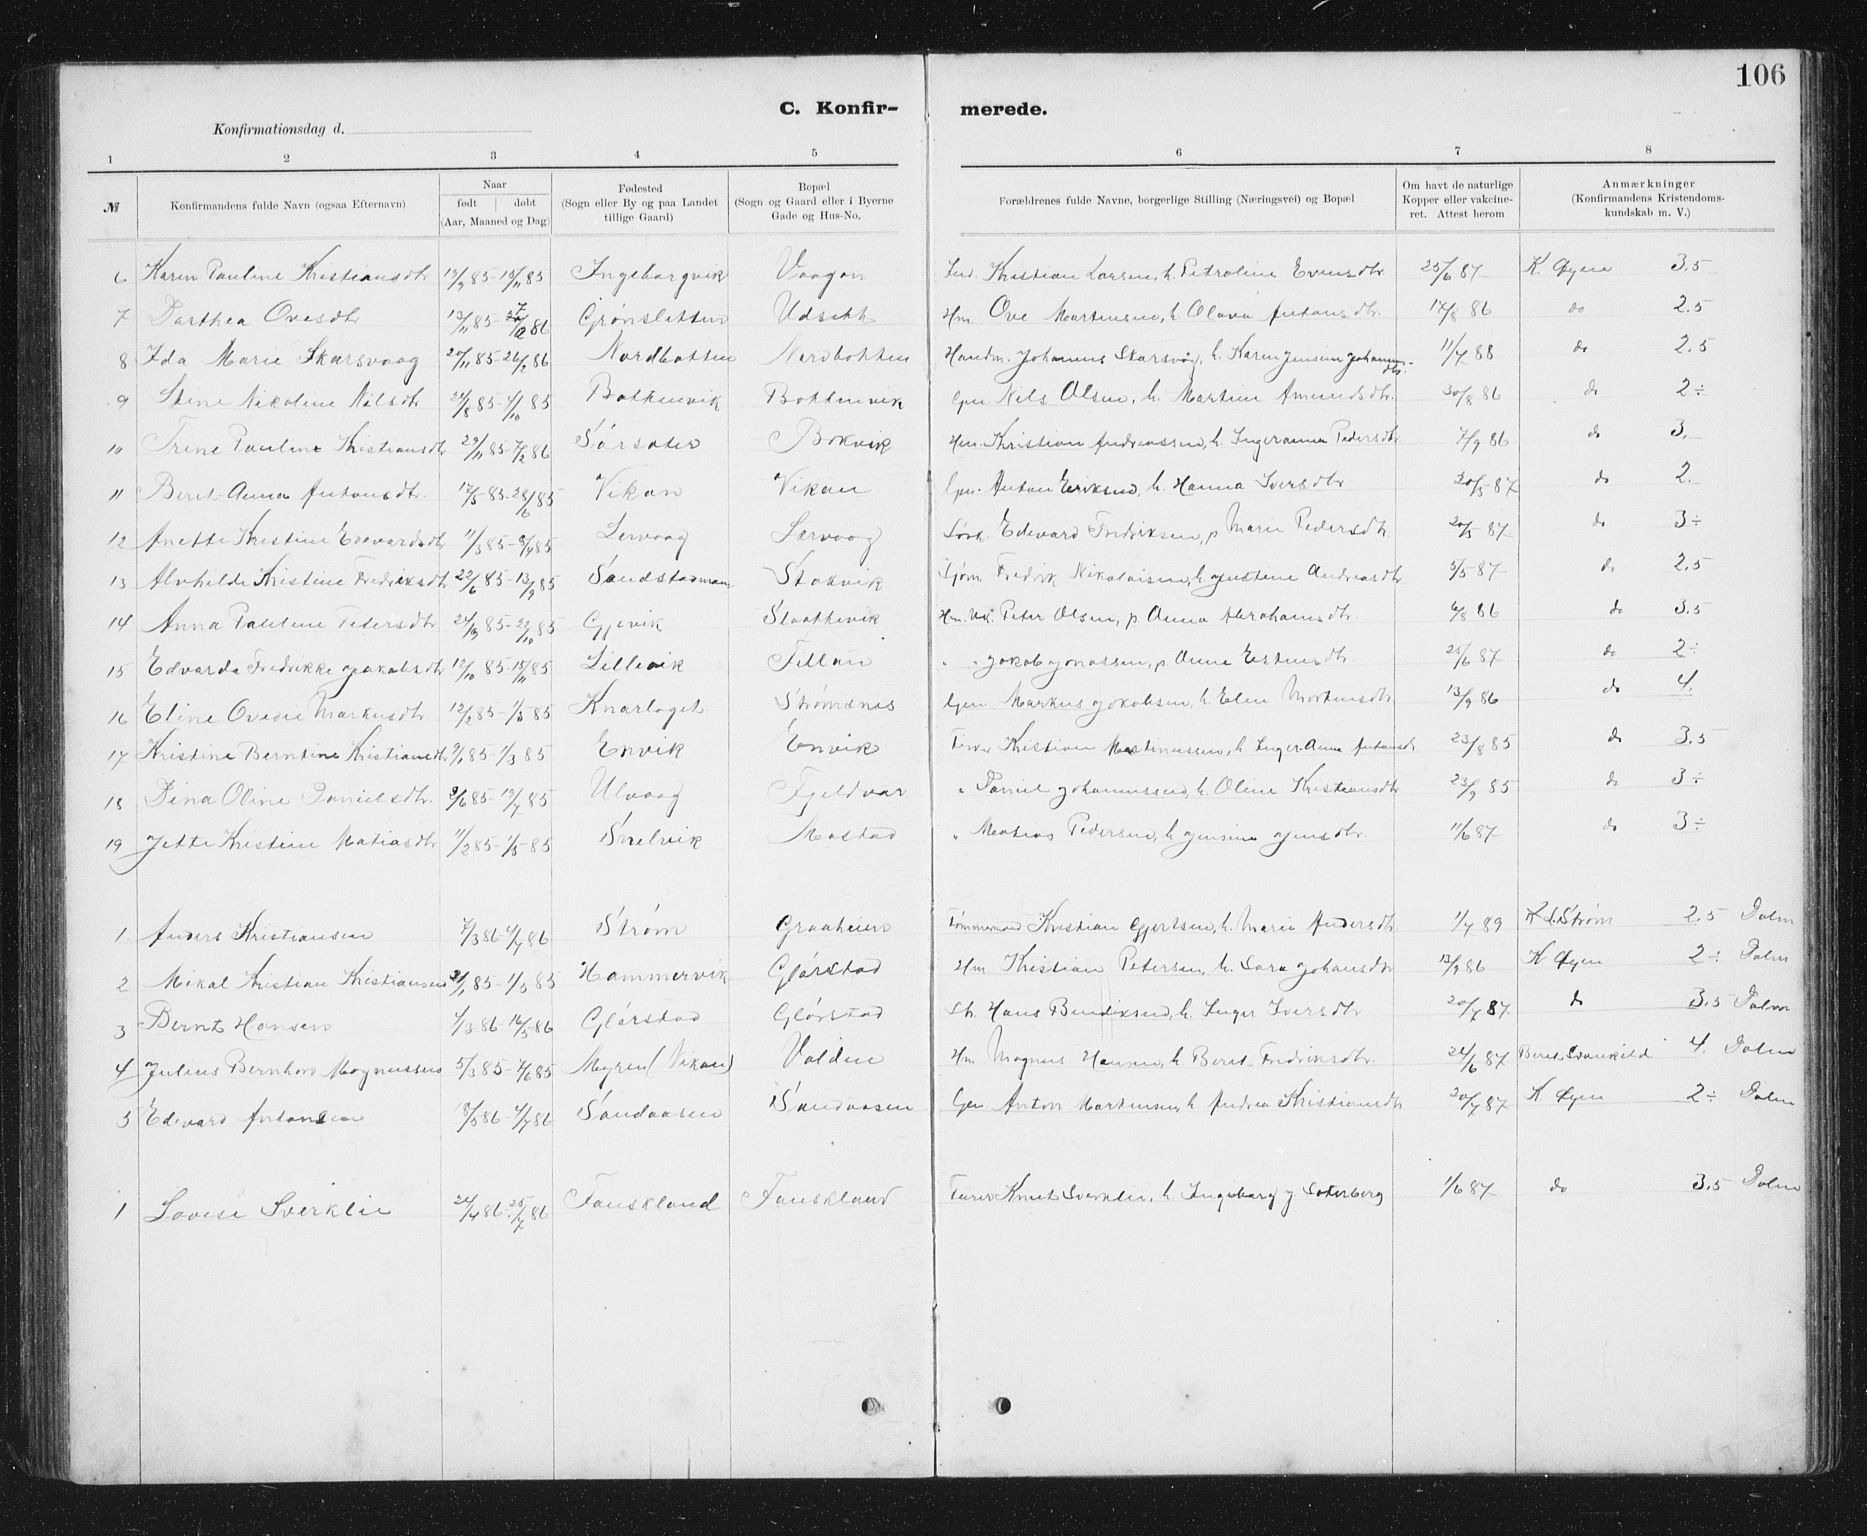 106
C. Konfir- merede.
Konfirmationsdag d.
1 2 3 4 5 6 7 8
№ Konfirmandens fulde Navn (ogsaa Efternavn) Naar født døbt (Aar, Maaned og Dag) Fødested (Sogn eller By og paa Landet tillige Gaard) Bopæl (Sogn og Gaard eller i Byerne Gade og Hus-No. Forældrenes fulde Navne, borgerlige Stilling (Næringsvei) og Bopæl Om havt de naturlige Kopper eller vakcineret. Attest herom Anmærkninger (Konfirmandens Kristendomskundskab m. V.)
6 Karen Pauline Kristiansdtr 85 - 15/11 85 Ingeborgvik Vaagan Kristian Larsen, h. Petroline Evensdtr 25/6 87 K. Øyen 3.5
7 Dorthea Ovesdtr 13/11 85 - 86 Grønsletten Udsikt Hm. Ove Martinsen, h. Olava Antonsdtr. 17/8 86 do 2.5
8 Ida Marie Skarsvaag 20/11 85 - 26/2 86 Nordbotten Nordbotten Johannes Skarsvåg, h. Karen Jensine Johannesdtr. 11/7 88 do 2.5
9 Stene Nikoline Nilsdtr 85 - 4/10 85 Bottenvik Bottenvik Nils Olsen, h. Martine Amundsdtr. 30/8 86 do 2÷
10 Trine Pauline Kristiansdtr 29/11 85 - 7/2 86 Sørsæter Bokvik Hm. Kristian Andreassen, h. Ingeranna Pedersdtr 7/9 86 do 3.
11 Beret-Anna Antonsdtr. 17/5 85 - 28/6 85 Vikan Vikan Anton Eriksen, h. Hanna Iversdtr 20/5 87 do 2.
12 Anette Kristine Edevardsdtr 11/3 85 - 85 Lervaag Lervaag Edevard Fredriksen, p. Marie Pedersdtr. 20/5 87 do 3÷
13 Alvhilde Kristine Fredriksdtr 29/6 85 - 13/9 85 Stokvik Fredrik Nikolaisen, h. Justine Andreasdtr 5/5 87 do 2.5
14 Anna Pauline Pedersdtr 85 - 85 Gjevik Hm. Peter Olsen, p. Anna Abrahamsdtr. 6/8 86 do 3.5
15 Edvarda Fredrikke Jakobsdtr 12/10 85 - 15/11 85 Lillevik Fillan " " Jakob Jonassen, p. Anne Estensdtr. 25/6 87 do 2÷
16 Eline Ovedie Markusdtr. 12/2 85 - 1/5 85 Knarlaget Strømsnes Markus Jakobsen, h. Elen Mortensdtr 13/9 86 do 4.
17 Kristine Berntine Kristiansdtr 85 - 1/3 85 Envik Envik Kristian Martinussen, h. Inger Anna Antonsdtr 23/8 85 do 3.5
18 Dina Oline Danielsdtr. 85 - 19/7 85 Ulvaag Fjeldvær " Daniel Johannessen, h. Oline Kristiansdtr 23/9 85 do 3÷
19 Jette Kristine Matiasdtr 11/2 85 - 1/5 85 Snelvik Mastad " Matias Pedersen, h. Jensine Jensdtr. 11/6 87 do 3÷
1. Anders Kristiansen 7/3 86 - 4/7 86 Strøm Graaheien Tømmermand Kristian Gjertsen, h. Marie Andersdtr 1/7 89 Strøm 2.5 Dolm
2 Mikal Kristian Kristiansen 85 - 1/5 85 Hammervik Glørstad Hm Kristian Petersen, h. Sara Johansdtr 13/9 86 K Øyen 2÷ Dolm
3 Bernt Hansen 4/3 86 - 16/5 86 Glørstad Glørstad Hans Bendiksen, h. Inger Iversdtr. 20/7 87 do 3.5 Dolm
4 Julius Bernhard Magnussen 5/3 85 - 7/6 85 Myren (Vikan) Valdin Hm Magnus Hansen, h. Beret Fredriksdtr. 24/6 87 Beret Svankild 4. Dolm
5 Edevard Antonsen 86 - 4/7 86 Sandaasen Sandaasen Anton Martinsen, h. Andrea Kristiansdtr 20/7 87 K Øyen 2÷ Dolm
1 Lovise Sverklie 24/4 86 - 25/7 86 Fauskland Fauskland Knut Sverklie, h. Ingeborg J Soterberg 1/6 87 do 3.5 Dolm